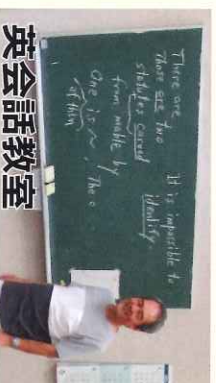 There are
Those are two
statutes carved
from mable by
One is ~, The o
of thin
It is impossible to
identify.
英会話教室